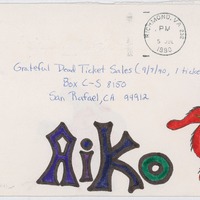 RICHMOND, VA 232
PM
5 JUL
1990
Grateful Dead Ticket Sales (9/7/90, 1 ticke
Box C-S 8150
San Rafael, CA 94912
AiKo